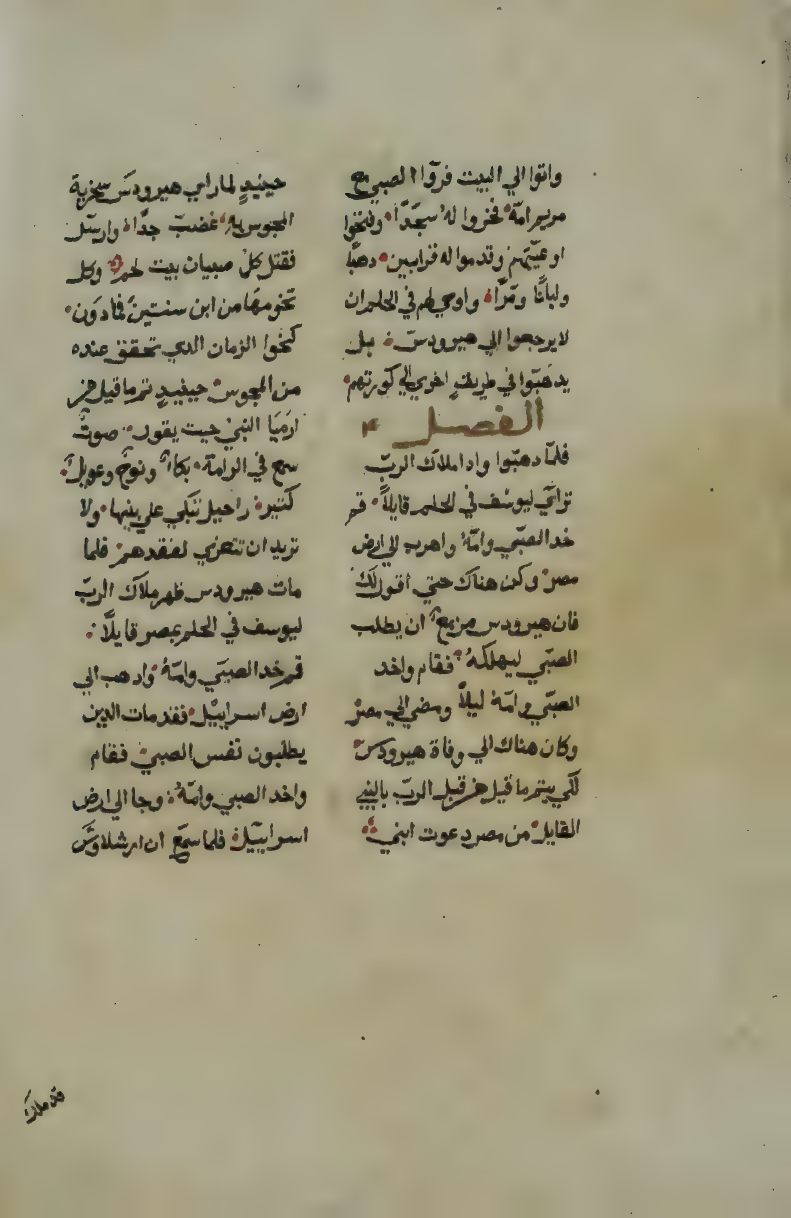 واتوا الي البيت فرآوا الصبي مع
مريم امّه فخروا له سجّدًا وفتحوا
اوعيّتهم وقدموا له قرابين دهبًا
ولبانًا ومّرًا واوحي لهم في الحلم ان
لا يرجعوا الي هيرودس بل
يدهبّوا في طريقٍ اخري الي كورتهم
الفصل ٣
فلمّا دهبّوا وادا ملاك الربّ
ترائي ليوسف في الحلم قايلاً قم
خد الصبّي وامّهُ واهرب الي ارض
مصر وكن هناك حتي اقول لك
فان هيرودس مزمع ان يطلب
الصبّي ليهلكهُ فقام واخد
الصبّي وامّهُ ليلاً ومضي الي مصر
وكان هناك الي وفاة هيرودس
لكي يتم ما قيل من قبل الربّ بالنبي
القايل من مصر دعوت ابني
حينيدٍ لما راي هيرودس سخرية
المجوس به غضبّ جدًا وارسل
فقتل كل صبيان بيت لحم وكل
تخومها من ابن سنتين فما دون
كنحوا الزمان الدي تحقق عنده
من المجوس حينيدٍ تم ما قيل من
ارَميَا النبي حيت يقول صوتٌ
سمع في الرامة بكاءٌ ونوحٌ وعويلٌ
كتير راحيل تبكي علي بنيها ولا
تريد ان تتعزي لفقدهم فلما
مات هيرودس ظهر ملاك الربّ
ليوسف في الحلم بمصر قايلاً
قم خد الصبّي وامّهُ وادهب الي
ارض اسراييّل فقد مات الدين
يطلبون نفس الصبي فقام
واخد الصبي وامّهُ وجا الي ارض
اسراييّل فلما سمّع ان ارشلاوش
قد ملك